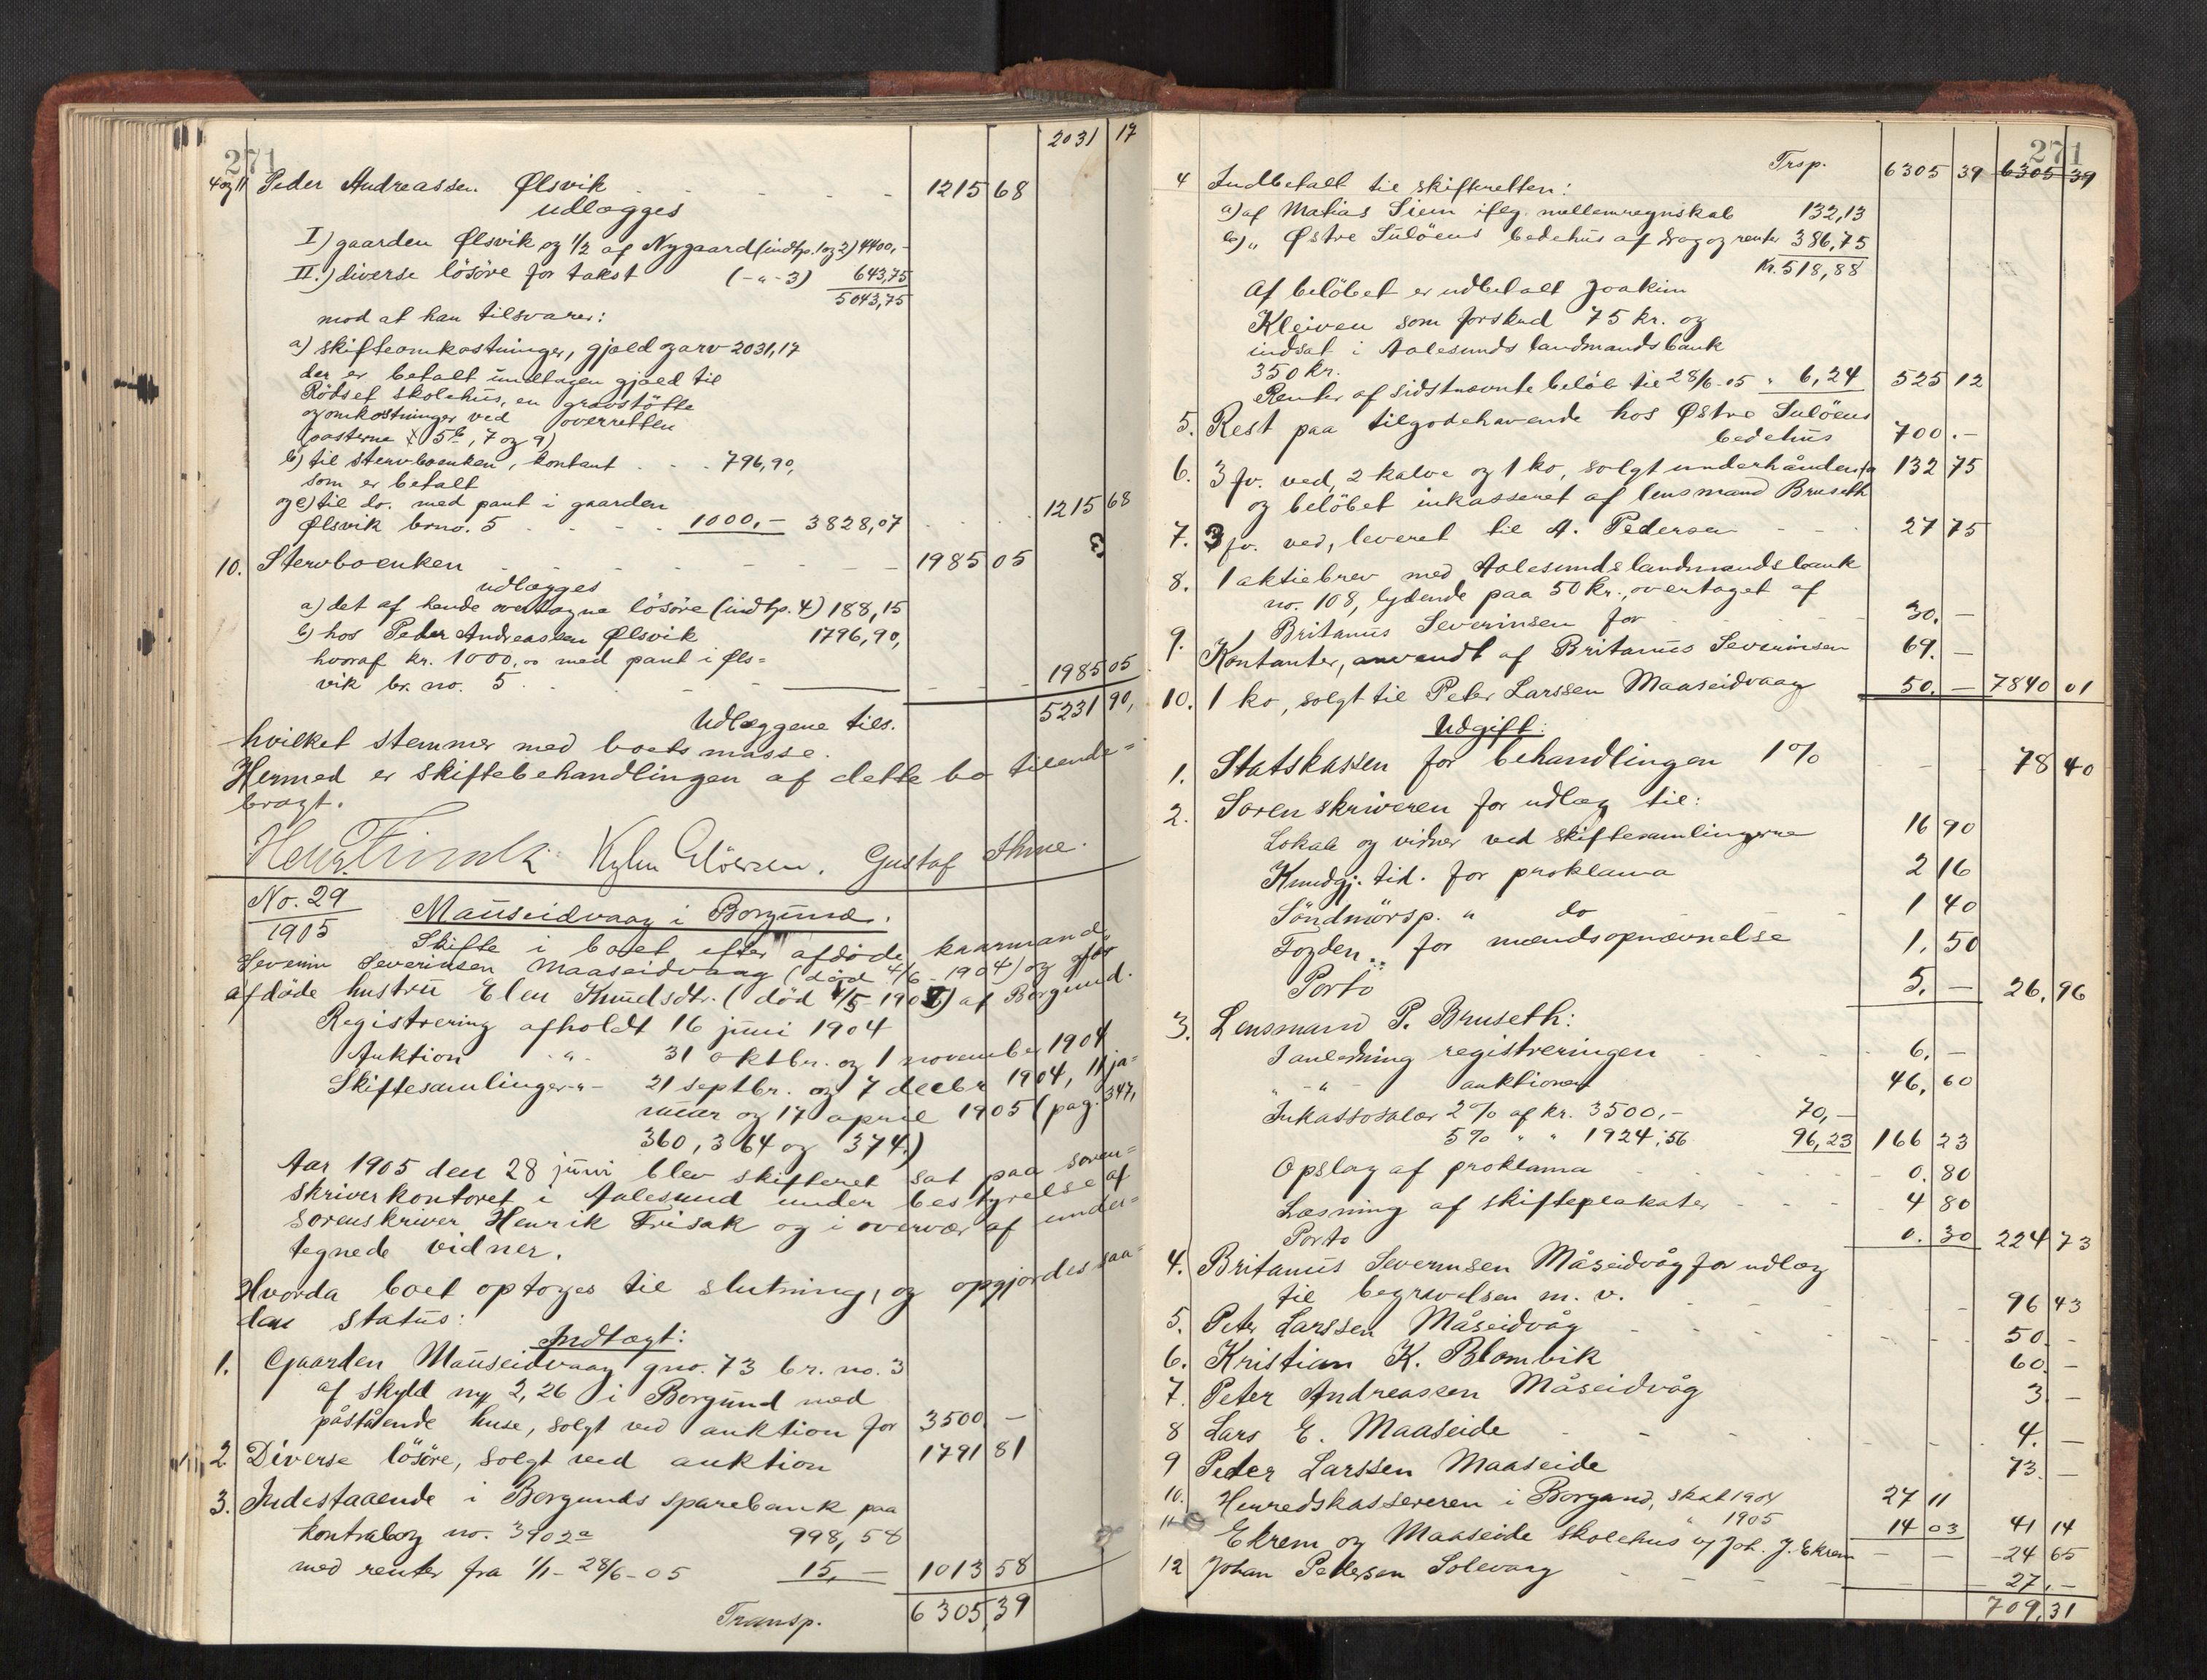 271
2031 17
4og11 Peder Andreassen Ølsvik 1215 68
udlægges
I) gaarden Ølsvik og 1/2 af Nygaard (indtp. 1 og 2) 4400,-
II.) diverse lösöre for takst (-"- 3) 643,75
5043,75
mod at han tilsvarer:
a) skifteomkostninger, gjæld og arv 2031,17
der er betalt undtagen gjæld til
Rödset skolehus, en gravstötte
og omkostninger ved overretten
(posterne 5b, 7 og 9)
b) til stervboenken, kontant 796,90,
som er betalt
og c) til do. med pant i gaarden
Ølsvik brno. 5 1000,- 3828,07 1215 68
10. Stervboenken 1985 05
udlægges
a) det af hende overtagne lösöre (indtp. 4) 188,15
b) hos Peder Andreassen Ølsvik 1796,90,
hvoraf kr. 1000,00 med pant i Øls=
vik br. no. 5 1985 05
Udlæggene tils. 5231 90,
hvilket stemmer med boets masse.
Hermed er skiftebehandlingen af dette bo tilende=
bragt.
Henr. Frisak Gustaf Thue.
No. 29
1905
Mauseidvaag i Borgund.
Skifte i boet efter afdöde kaarmand
Severin Severinsen Maaseidvaag (död 4/6 - 1904) og för
afdöde hustru Elen Knudsdtr. (död /5 - 190 ) af Borgund.
Registrering afholdt 16 juni 1904
Auktion -"- 31 oktbr. og 1 november 1904
Skiftesamlinger -"- 21 septbr. og 7 decbr 1904, 11 ja=
nuar og 17 april 1905 (pag. 347,
360, 364 og 374.)
Aar 1905 den 28 juni blev skifteret sat paa soren=
skriverkontoret i Aalesund under bestyrelse af
sorenskriver Henrik Frisak og i overvær af under=
tegnede vidner.
Hvorda boet optoges til slutning, og opgjordes saa=
dan status:
Indtægt:
1. Gaarden Mauseidvaag gno. 73 br. no. 3
af skyld ny 2,26 i Borgund med
påstående huse, solgt ved auktion for 3500. -
2 Diverse lösöre, solgt ved auktion 1791 81
3. Indestaaende i Borgunds sparebank paa
kontrabog no. 3902a 998,58
med renter fra 1/1 - 28/6 - 05 15,- 1013 58
Transp. 6305,39
271
Trsp. 6305 39 6305 39
4 Indbetalt til skifteretten:
a) af Matias Siem ifлg. mellemregnskab 132,13
b) " Østre Sulöens bedehus afdrag og renter 386,75
Kr. 518,88
Af belöbet er udbetalt Joakim
Kleiven som forskud 75 kr. og
indsat i Aalesunds landmandsbank
350 kr.
Renter af sidstnævnte belöb til 28/6-05 " 6,24 525 12
5. Rest paa tilgodehavende hos Østre Sulöens
bedehus 700. -
6. 3 fv. ved, 2 kalve og 1 ko, solgt underhånden 132 75
og belöbet inkasseret af lensmand Bruseth
7. 3 fv. ved, leveret til A. Pedersen 27 75
8. 1 aktiebrev med Aalesunds landmandsbank
no. 108, lydende paa 50 kr., overtaget af
Britanus Severinsen for 30. -
9. Kontanter, anvendt af Britanus Severinsen 69. -
10. 1 ko, solgt til Peter Larssen Maaseidvaag 50. - 7840 01
Udgift:
1. Statskassen for behandlingen 1% 78 40
2. Sorenskriveren for udlæg til:
Lokale og vidner ved skiftesamlingerne 16 90
Kundgj. tid. for proklama 2 16
Söndmörsp. " do 1 40
Fogden for mændsopnævnelse 1. 50
Porto 5. - 26, 96
3. Lensmand P. Bruseth:
I anledning registreringen 6. -
" -"- auktionen 46, 60
Inkassosalær 2% af kr. 3500,- 70,-
5% " " 1924,56 96,23 166 23
Opslag af proklama 0. 80
Læsning af skifteplakater 4 80
Porto 0. 30 224 73
4. Britanus Severinsen Måseidvåg for udlæg
til begravelsen m. v. 96 43
5. Peter Larssen Måseidvåg 50. -
6. Kristian K. Blomvik 60. -
7. Peter Andreassen Måseidvåg 3. -
8 Lars E. Maaseide 4. -
9 Peder Larssen Maaseide 73. -
10. Herredskassereren i Borgund, skat 1904 27 11
" 1905 14 03 41 14
11 Ekrem og Maaseide skolehus v/ Joh. J. Ekrem 24 65
12 Johan Pedersen Solevaag 27. -
709,31